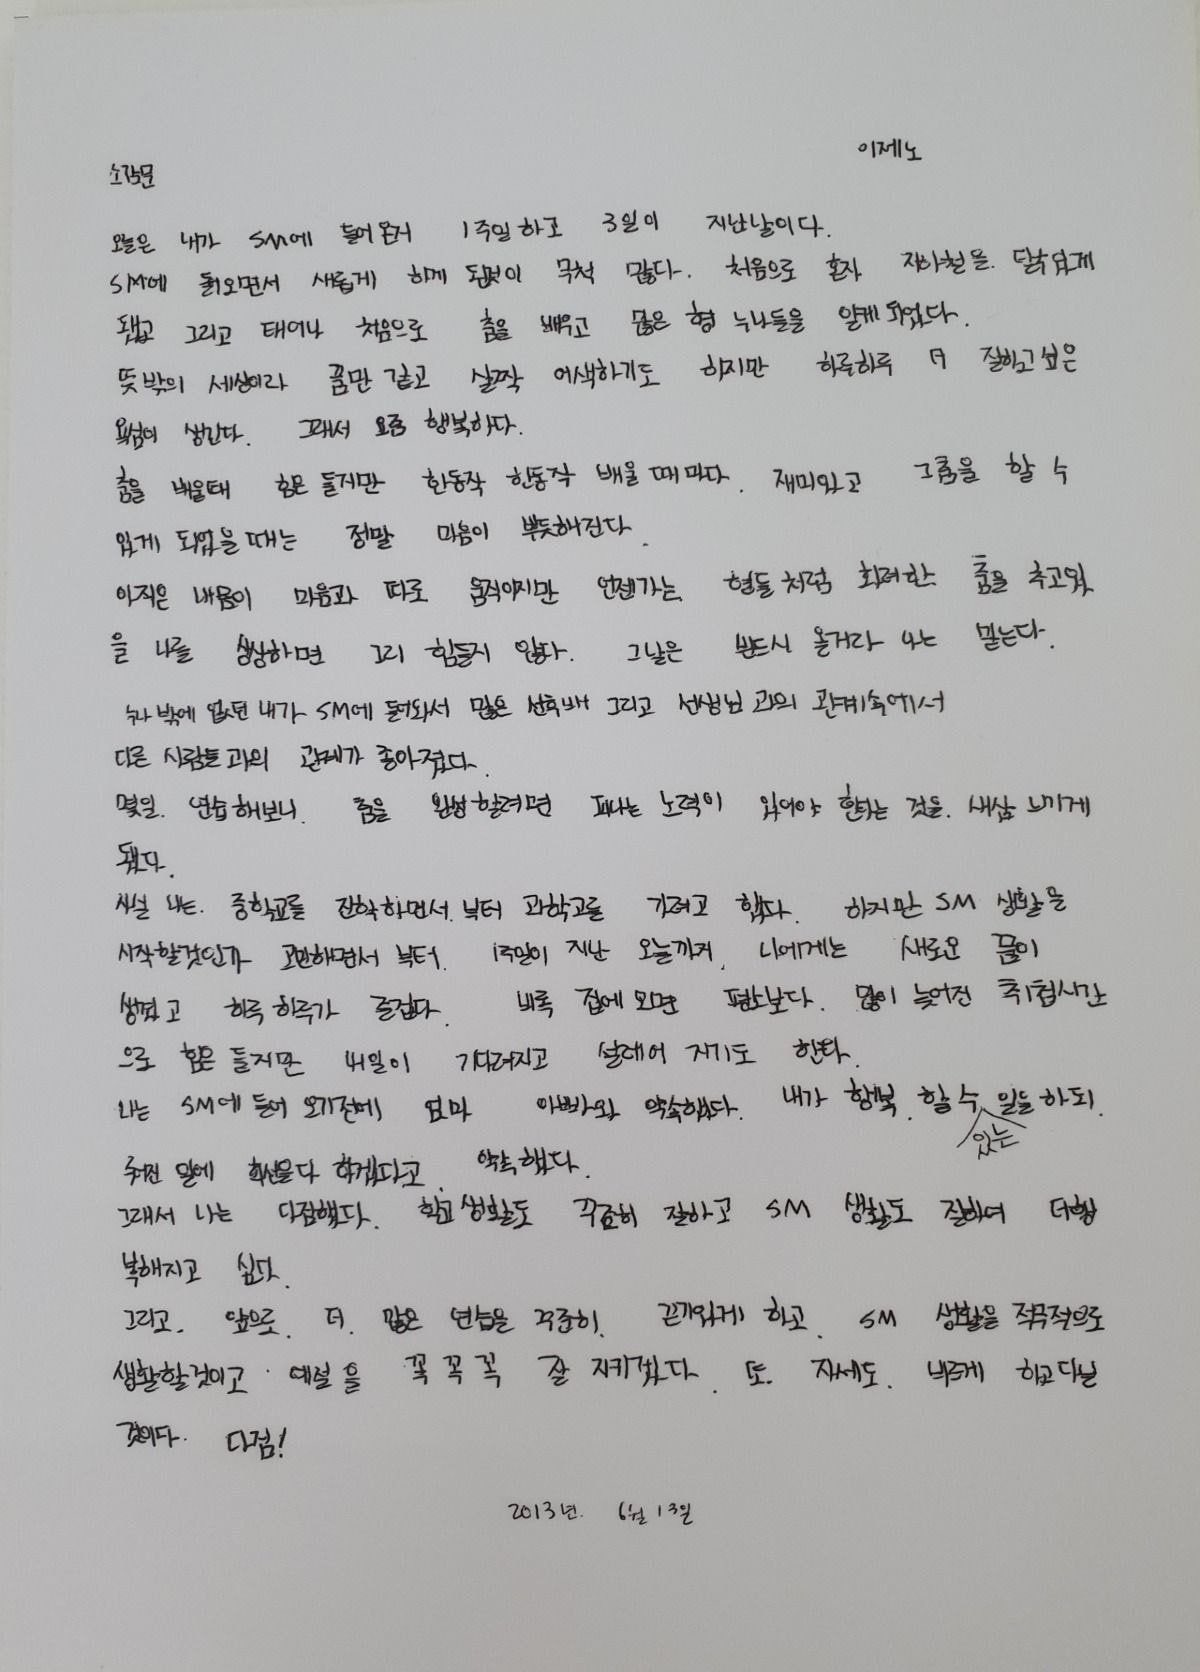 이제노
소작문
오늘은 내가 SM에 들어온지 1주일하고 3일이 지난날이다.
SM에 들어오면서 새롭게 하게 된것이 무척 많다. 처음으로 혼자 지하철을 탈수있게
됐고 그리고 태어나 처음으로 춤을 배우고 많은 형 누나들을 알게되었다.
뜻밖의 세상이라 꿈만 같고 살짝 어색하기도 하지만 하루하루 더 잘하고싶은
욕심이 생긴다. 그래서 요즘 행복하다.
춤을 배울때 힘은 들지만 한동작 한동작 배울때마다. 재미있고 그춤을 할 수
있게 되었을때는 정말 마음이 뿌듯해진다.
아직은 내몸이 마음과 따로 움직이지만 언젠가는 형들처럼 화려한 춤을 추고있
을 나를 상상하면 그리 힘들지 않다. 그날은 반드시 올거라 나는 믿는다.
누나밖에 없던 내가 SM에 들어와서 많은 선후배 그리고 선생님과의 관계속에서
다른 사람들과의 관계가 좋아졌다.
몇일 연습해보니. 춤을 완성할려면 피나는 노력이 있어야 한다는 것을 새삼 느끼게
됐다.
사실 나는. 중학교를 진학하면서 부터 과학고를 가려고 했다. 하지만 SM 생활을
시작할것인가 고민하면서 부터. 1주일이 지난 오늘까지 나에게는 새로운 꿈이
생겼고 하루하루가 즐겁다. 비록 집에오면 평소보다. 많이 늦어진 취침시간
으로 힘은 들지만 내일이 기다려지고 설레어 지기도 한다.
나는 SM에 들어오기전에 엄마 아빠와 약속했다. 내가 행복 할 수 있는 일을하되.
주어진 일에 최선을다 하겠다고 약속했다.
그래서 나는 다짐했다. 학교생활도 꾸준히 잘하고 SM 생활도 잘하여 더행
복해지고 싶다.
그리고. 앞으로. 더. 많은 연습을 꾸준히. 끈기있게 하고. SM 생활을 적극적으로
생활할것이고 예절을 꼭 꼭 꼭 잘 지키겠다. 또. 자세도. 바르게 하고다닐
것이다. 다짐!
2013년. 6월 13일